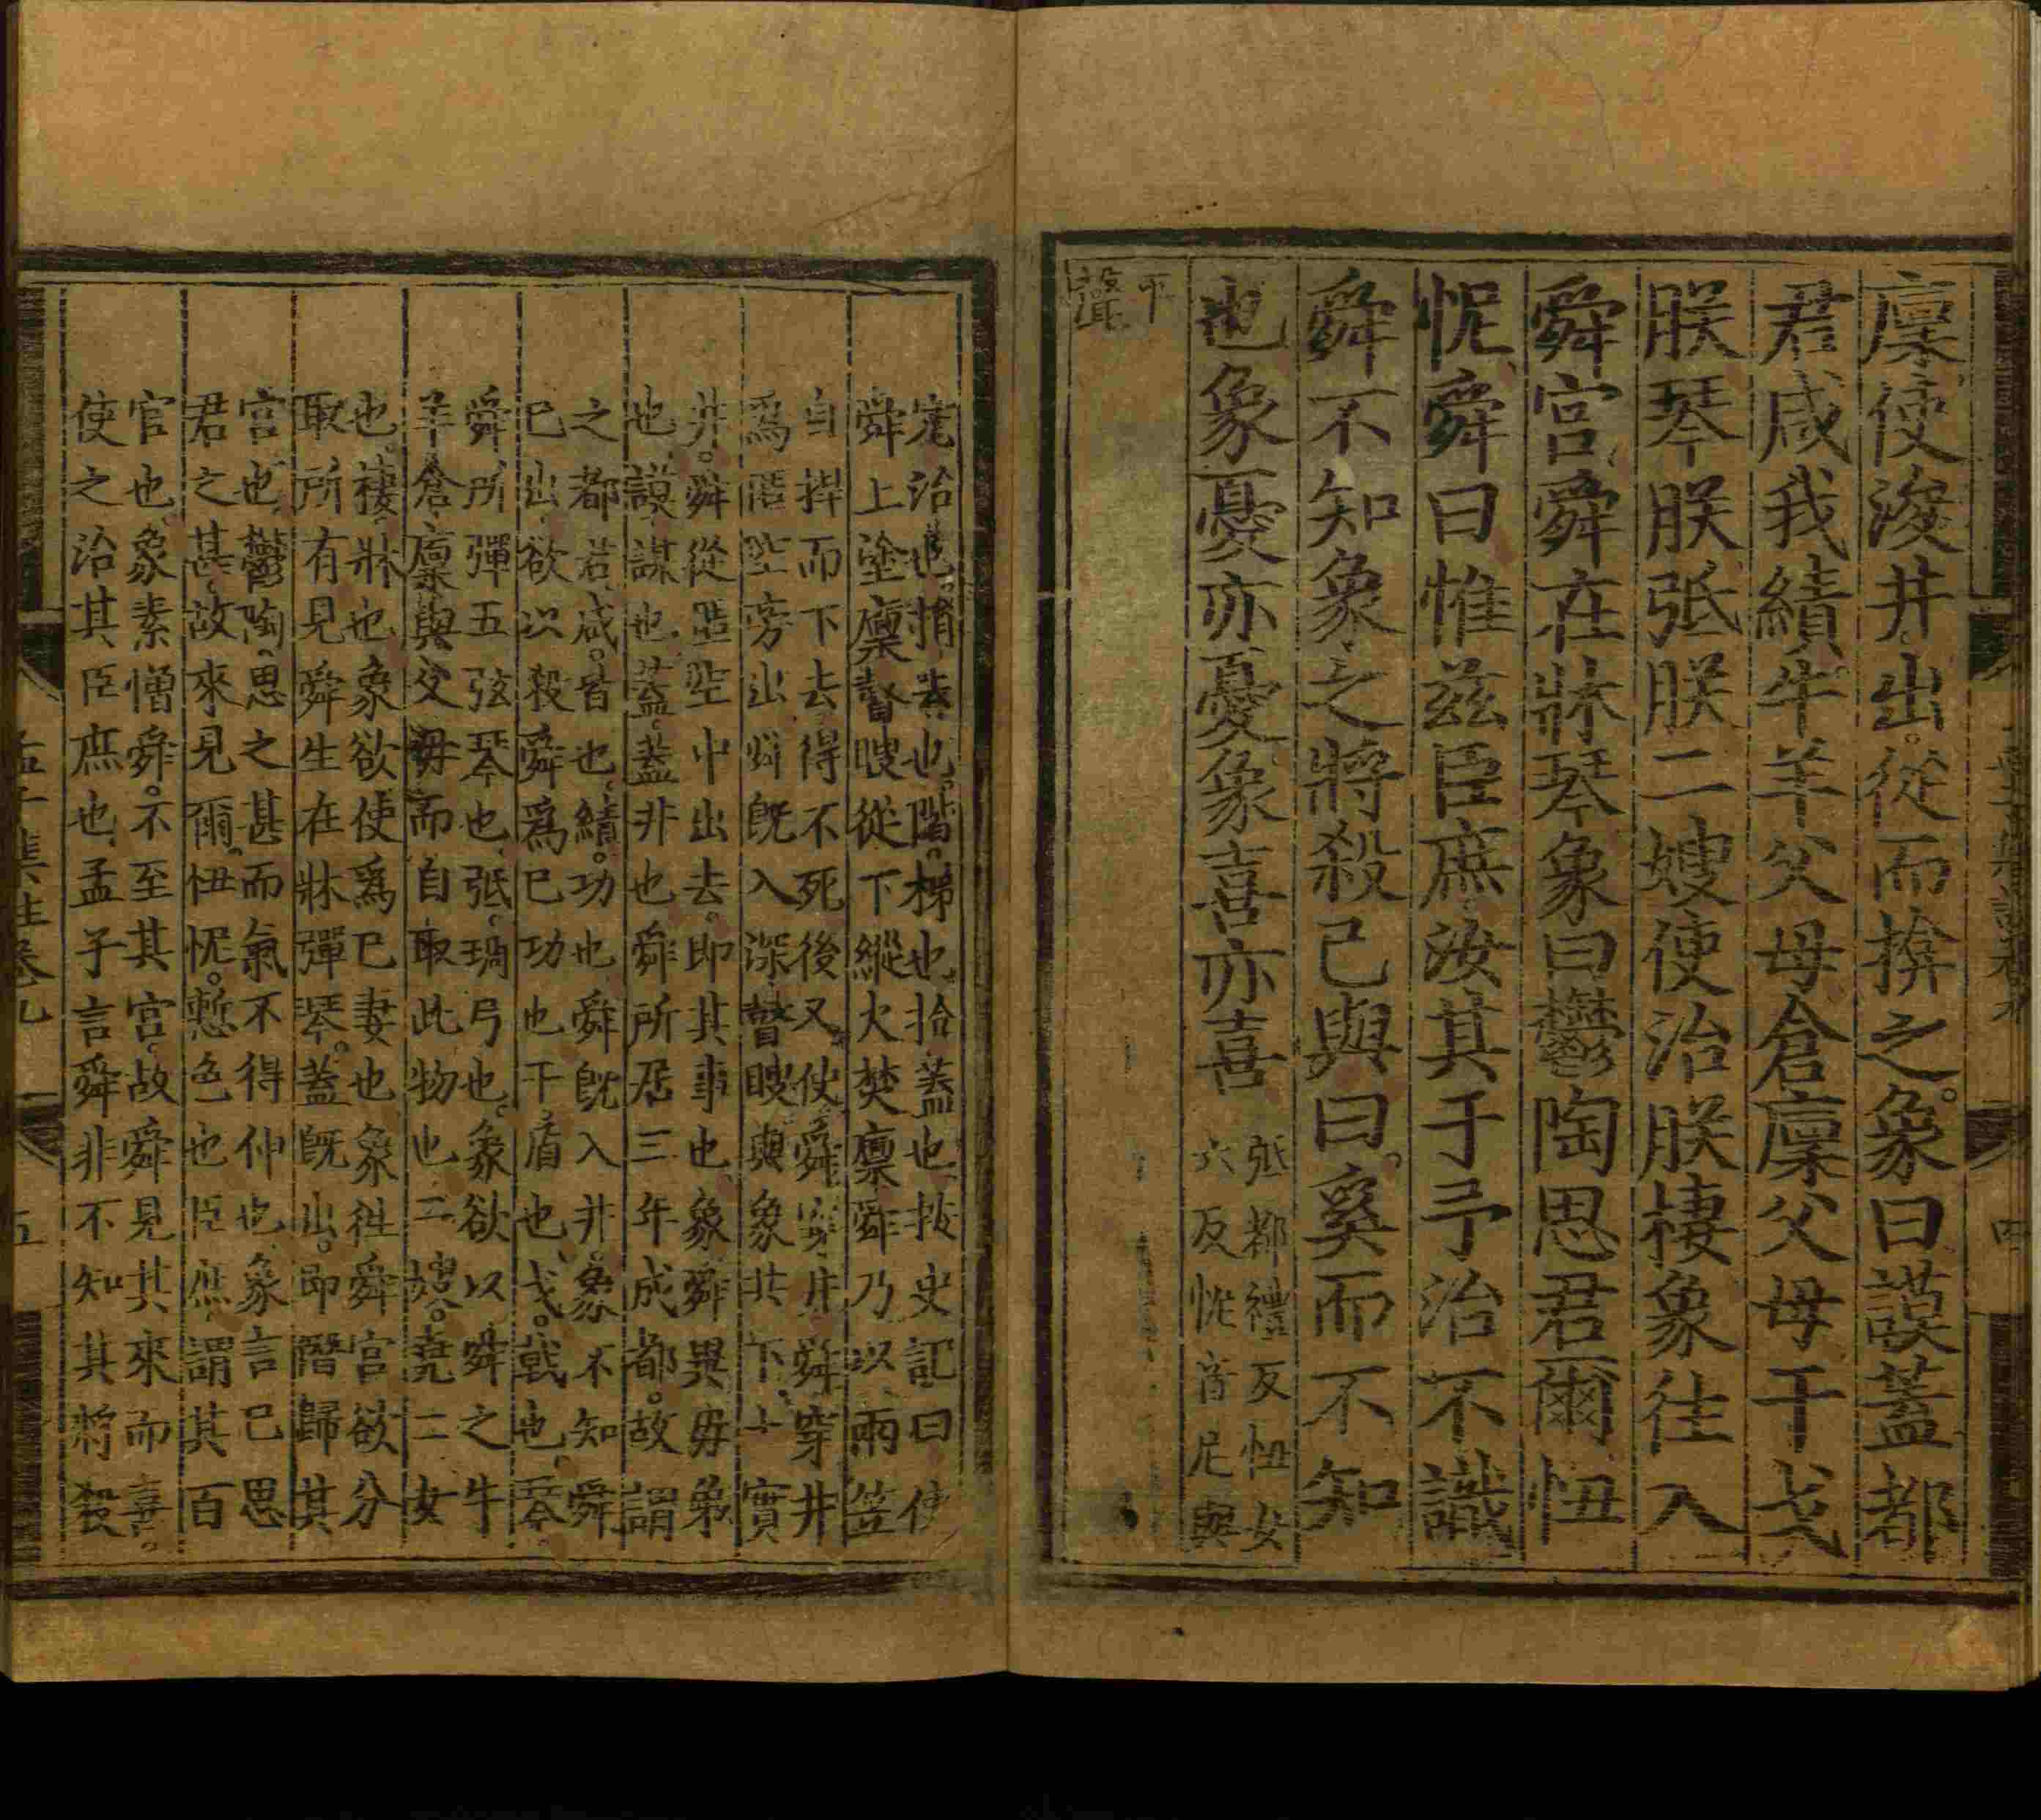 廩使浚井出從而揜之象曰謨蓋都
君咸我績牛羊父母倉廩父母干戈
朕琴朕弤朕二嫂使治朕棲象往入
舜宮舜在牀琴象曰鬱陶思君爾忸
怩舜曰惟茲臣庶汝其于予治不識
舜不知象之將殺己與曰奚而不知
也象憂亦憂象喜亦喜
弤都禮反忸女
六反怩音尼與
平
聲
完治也捐去也階梯也揜蓋也按史記曰使
舜上塗廩瞽瞍從下縱火焚廩舜乃以兩笠
自捍而下去得不死後又使舜穿井舜穿井
為匿空旁出舜既入深瞽瞍與象共下土實
井舜從匿空中出去即其事也象舜異母弟
也謨謀也蓋蓋井也舜所居三年成都故謂
之都君咸皆也績功也舜既入井象不知舜
已出欲以殺舜為己功也干盾也戈戟也琴
舜所彈五弦琴也弤琱弓也象欲以舜之牛
羊倉廩與父母而自取此物也二嫂堯二女
也棲牀也象欲使為己妻也象往舜宮欲分
取所有見舜生在牀彈琴蓋既出即潛歸其
宮也鬱陶思之甚而氣不得伸也象言己思
君之甚故來見爾忸怩慙色也臣庶謂其百
官也象素憎舜不至其宮故舜見其來而喜
使之治其臣庶也孟子言舜非不知其將殺
孟子集註卷九
四
五